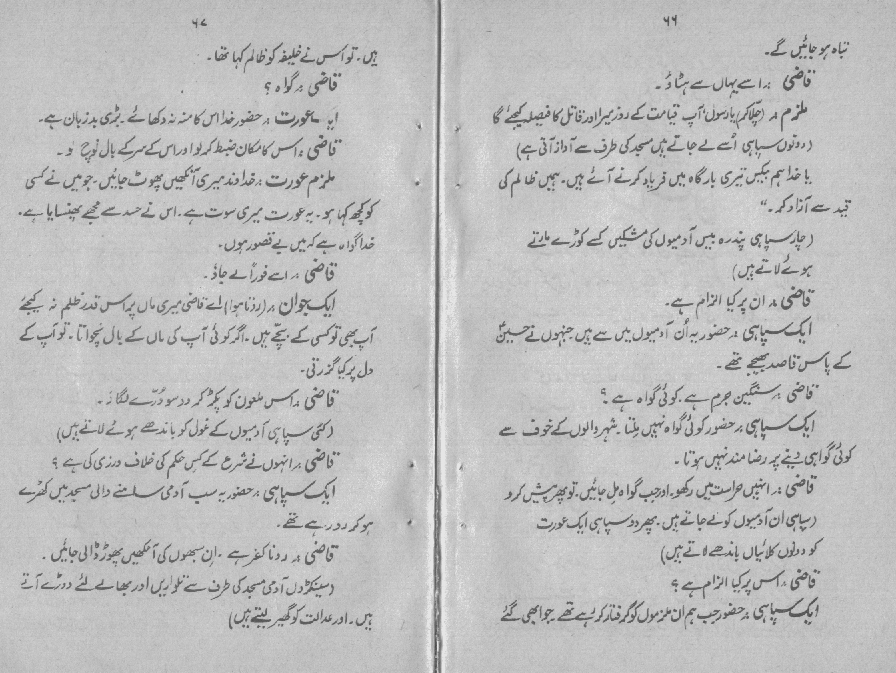 ۶۶
تباہ ہو جائیں گے۔
قاضی :۔ اسے یہاں سے ہٹا دو۔
ملزم :۔ (چلا کر) یا رسول! آپ قیامت کے روز میرا اور قاتل کا فیصلہ کیجئے گا
(دونوں سپاہی اُسے لے جاتے ہیں مسجد کی طرف سے آواز آتی ہے)
یا خدا ہم بیکس تیری بارگاہ میں فریاد کرنے آئے ہیں۔ ہمیں ظالم کی
قید سے آزاد کر۔“
(چار سپاہی پندرہ بیس آدمیوں کی مشکیں کسے کوڑے مارتے
ہوئے لاتے ہیں)
قاضی :۔ ان پر کیا الزام ہے۔
ایک سپاہی :۔ حضور یہ اُن آدمیوں میں سے ہیں جنہوں نے حسینؑ
کے پاس قاصد بھیجے تھے۔
قاضی :۔ سنگین جرم ہے۔ کوئی گواہ ہے ؟
ایک سپاہی :۔ حضور کوئی گواہ نہیں ملتا۔ شہر والوں کے خوف سے
کوئی گواہی دینے پر رضا مند نہیں ہوتا۔
قاضی :۔ انہیں حراست میں رکھو۔ اور جب گواہ مل جائیں۔ تو پھر پیش کرو
(سپاہی ان آدمیوں کو لے جاتے ہیں۔ پھر دو سپاہی ایک عورت
کو دونوں کلائیاں باندھے لاتے ہیں)
قاضی :۔ اس پر کیا الزام ہے ؟
ایک سپاہی :۔ حضور جب ہم ان ملزموں کو گرفتار کر رہے تھے۔ جو ابھی گئے
۶۷
ہیں۔ تو اس نے خلیفہ کو ظالم کہا تھا۔
قاضی :۔ گواہ ؟
ایک عورت :۔ حضور خدا اس کا منہ نہ دکھائے۔ بڑی بدزبان ہے۔
قاضی :۔ اس کا مکان ضبط کر لو اور اس کے سر کے بال نوچ لو۔
ملزم عورت :۔ خداوند میری آنکھیں پھوٹ جائیں۔ جو میں نے کسی
کو کچھ کہا ہو۔ یہ عورت میری سوت ہے۔ اس نے حسد سے مجھے پھنسایا ہے۔
خدا گواہ ہے کہ میں بے قصور ہوں۔
قاضی :۔ اسے فوراً لے جاؤ۔
ایک جوان :۔ (روتا ہوا) اے قاضی میری ماں پر اس قدر ظلم نہ کیجئے
آپ بھی تو کسی کے بچے ہیں۔ اگر کوئی آپ کی ماں کے بال نچواتا۔ تو آپ کے
دل پر کیا گزرتی۔
قاضی :۔ اس ملعون کو پکڑ کر دو سو دُرّے لگاؤ۔
(کئی سپاہی آدمیوں کے غول کو باندھے ہوئے لاتے ہیں)
قاضی :۔ انہوں نے شرع کے کس حکم کی خلاف ورزی کی ہے ؟
ایک سپاہی :۔ حضور یہ سب آدمی سامنے والی مسجد میں کھڑے
ہو کر رو رہے تھے۔
قاضی :۔ رونا کفر ہے۔ ان سبھوں کی آنکھیں پھوڑ ڈالی جائیں۔
(سینکڑوں آدمی مسجد کی طرف سے تلواریں اور بھالے لئے دوڑے آتے
ہیں۔ اور عدالت کو گھیر لیتے ہیں)